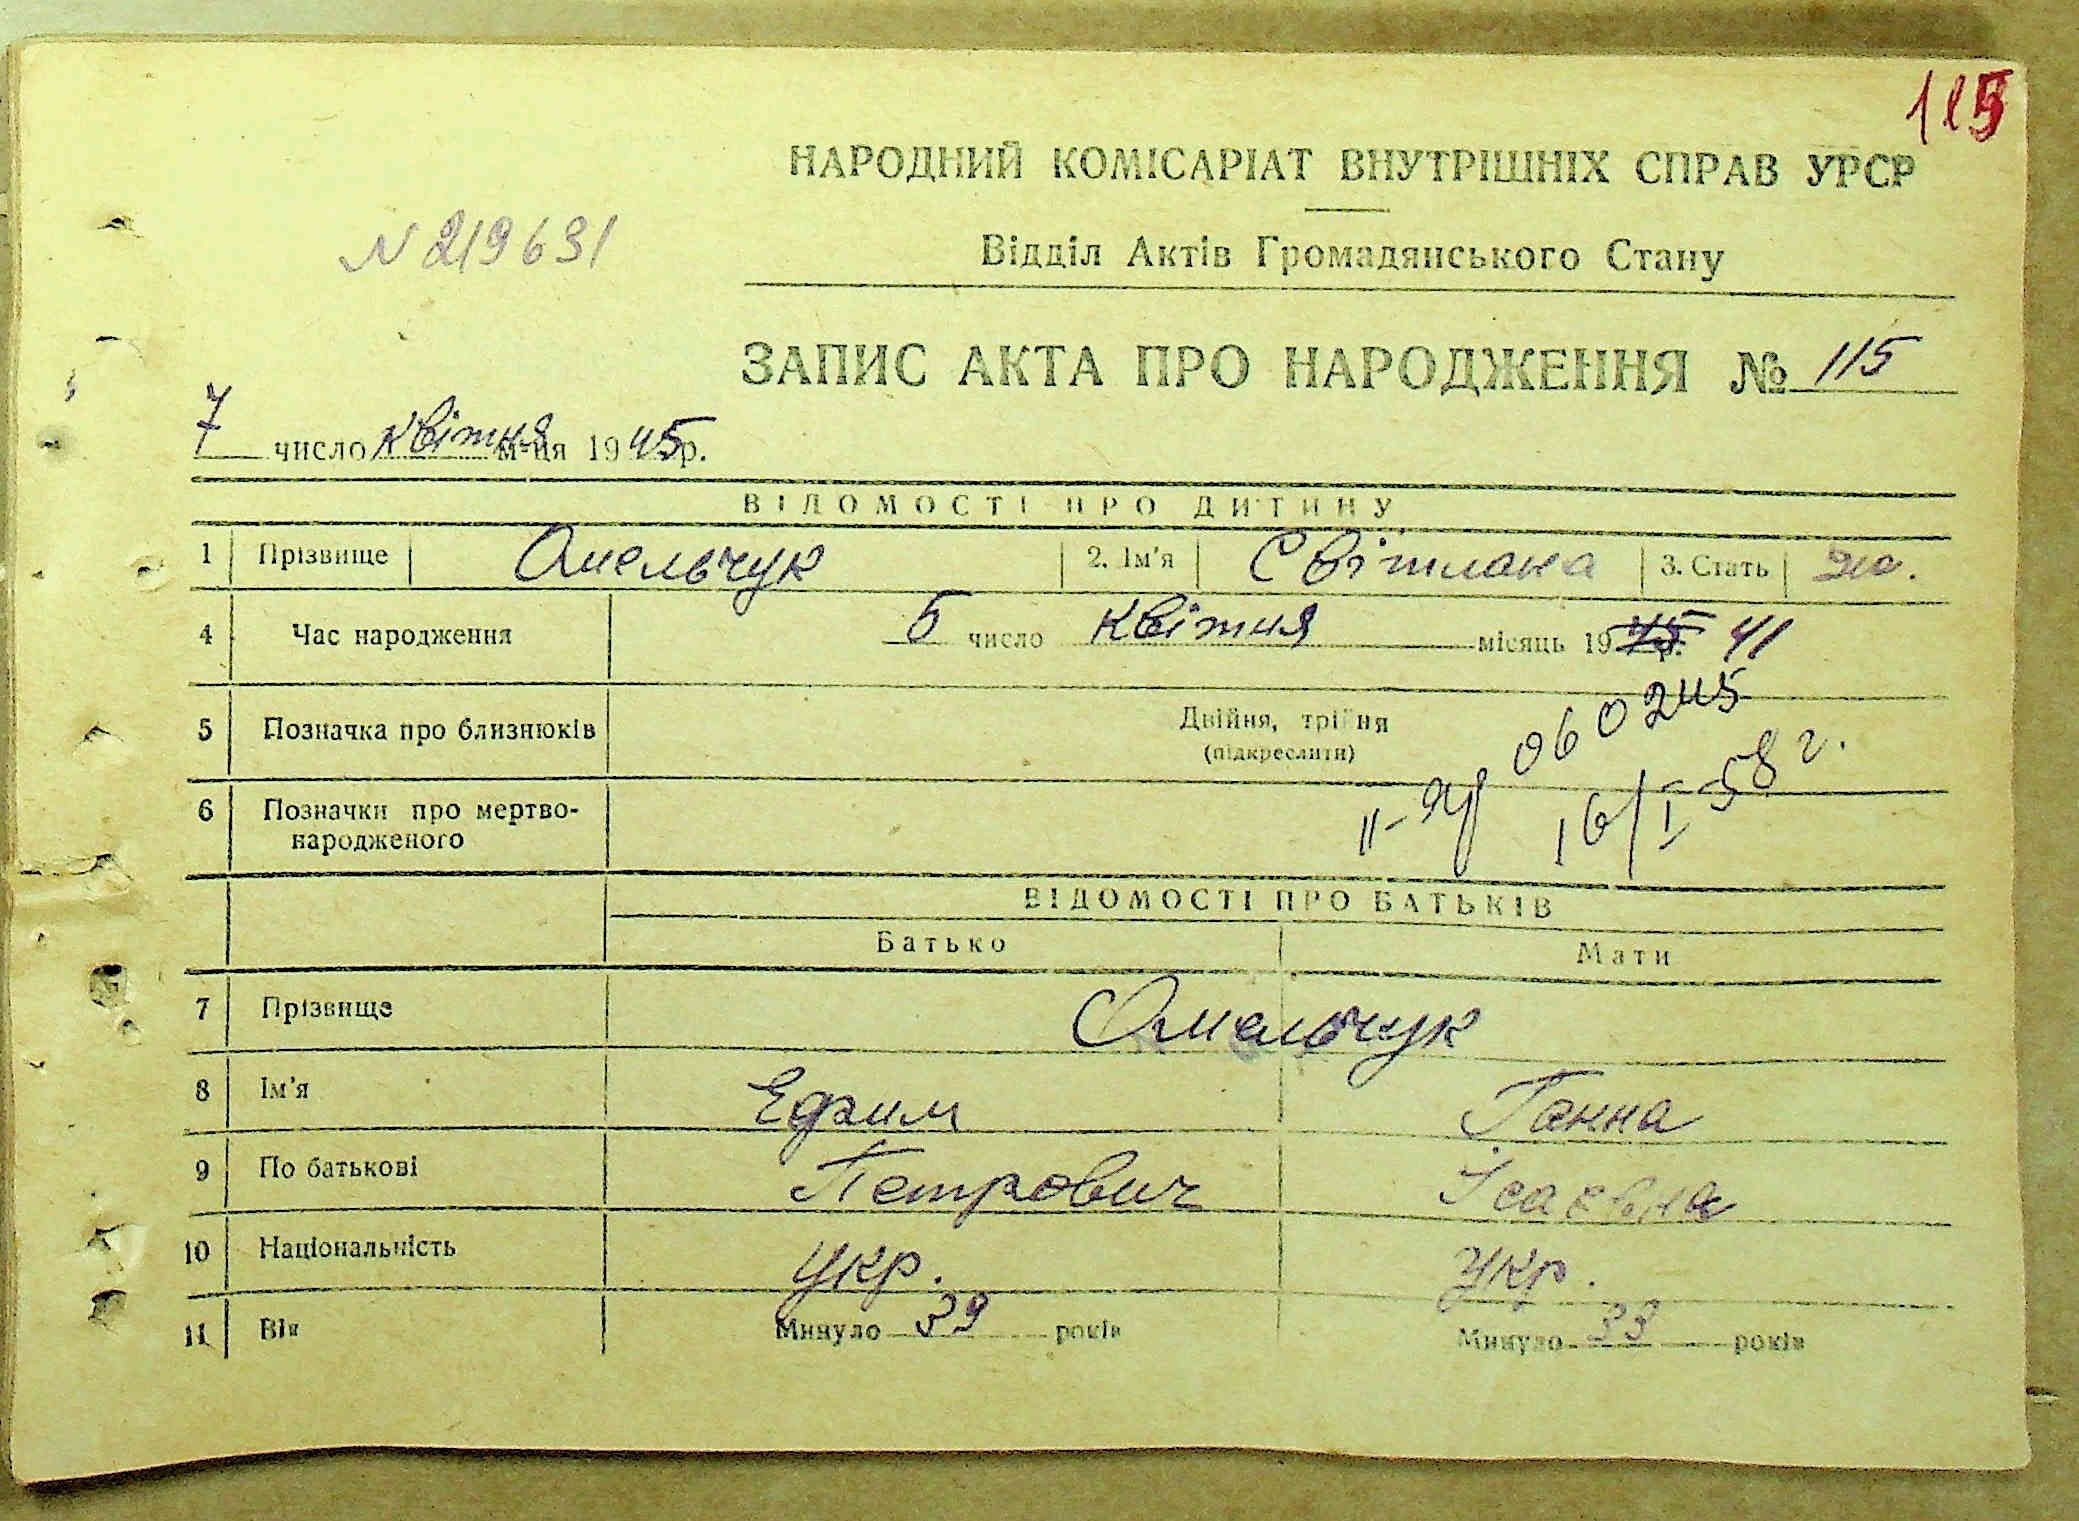 115
НАРОДНИЙ КОМІСАРІАТ ВНУТРІШНІХ СПРАВ УРСР
N 219631
Відділ Актів Громадянського Стану
ЗАПИС АКТА ПРО НАРОДЖЕННЯ № 115
7 число квітня м-ця 1945р.
ВІДОМОСТІ ПРО ДИТИНУ
1 Прізвище Омельчук 2. Ім'я Світлана 3. Стать жо.
4 Час народження 5 число квітня місяць 1945 р. 41
5 Позначка про близнюків Двійня, трійня
(підкреслити)
060245
6 Позначки про мертво-
народженого
II-ЯУ 16/I-58 г.
ВІДОМОСТІ ПРО БАТЬКІВ
Батько Мати
7 Прізвище Омельчук
8 Ім'я Ефим Ганна
9 По батькові Петрович Ісаєвна
10 Національність укр. укр.
11 Вік Минуло 39 років Минуло 33 років